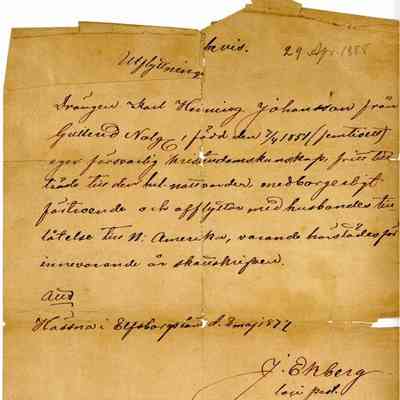 bevis.
29 Apr. 1888
Utflyttnings
Drängen Karl Henning Johansson från
Gullered Nolg, född den 7/4 1851 (femtioett)
eger försvarlig kristendomskunskap, fritt till
träde till den hel. nattvarden, medborgerligt
förtroende och afflyttar med husbondes till
låtelse till N. Amerika, varande härstädes för
innevarande år skattskrifven.
Hössna i Elfsborgs län d. 2 maj 1877
J. Ekberg